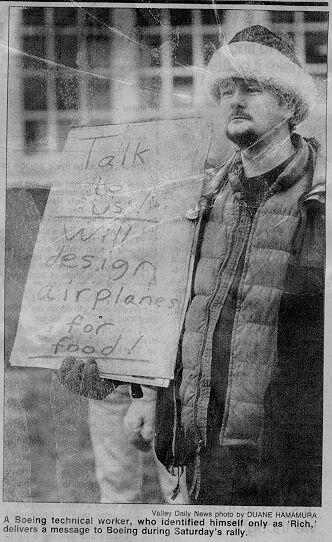 Talk
to
us!
will
design
airplanes
for
food!
Valley Daily News photo by DUANE HAMAMURA
A Boeing technical worker, who identified himself only as 'Rich,'
delivers a message to Boeing during Saturday's rally.